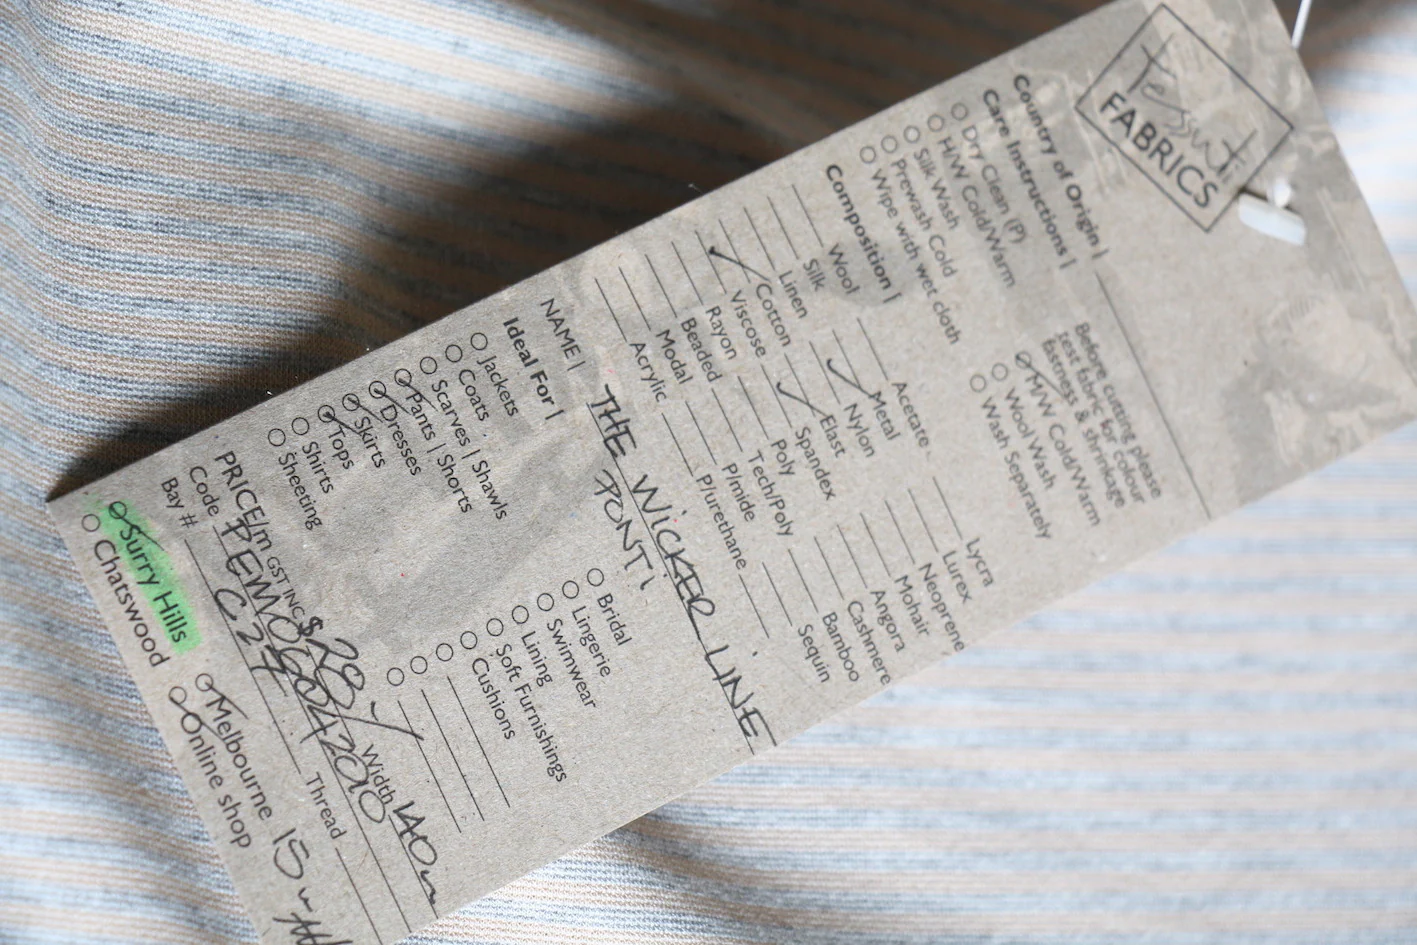 Tessuti
FABRICS
Country of Origin |
Care Instructions |
Dry Clean (P)
H/W Cold/Warm
Silk Wash
Prewash Cold
Wipe with wet cloth
Before cutting please
test fabric for colour
fastness & shrinkage
M/W Cold/Warm
Wool Wash
Wash Separately
Composition |
Wool
Silk
Linen
Cotton
Viscose
Rayon
Beaded
Modal
Acrylic
Acetate
Metal
Nylon
Elast
Spandex
Poly
Tech/Poly
P/mide
P/urethane
Lycra
Lurex
Neoprene
Mohair
Angora
Cashmere
Bamboo
Sequin
NAME | THE WICKER LINE
PONTI
Ideal For |
Jackets
Coats
Scarves | Shawls
Pants | Shorts
Dresses
Skirts
Tops
Shirts
Sheeting
Bridal
Lingerie
Swimwear
Lining
Soft Furnishings
Cushions
PRICE/m GST INC $28 Width 140
Code
Bay # C27 Thread
Surry Hills Melbourne
Chatswood Online shop